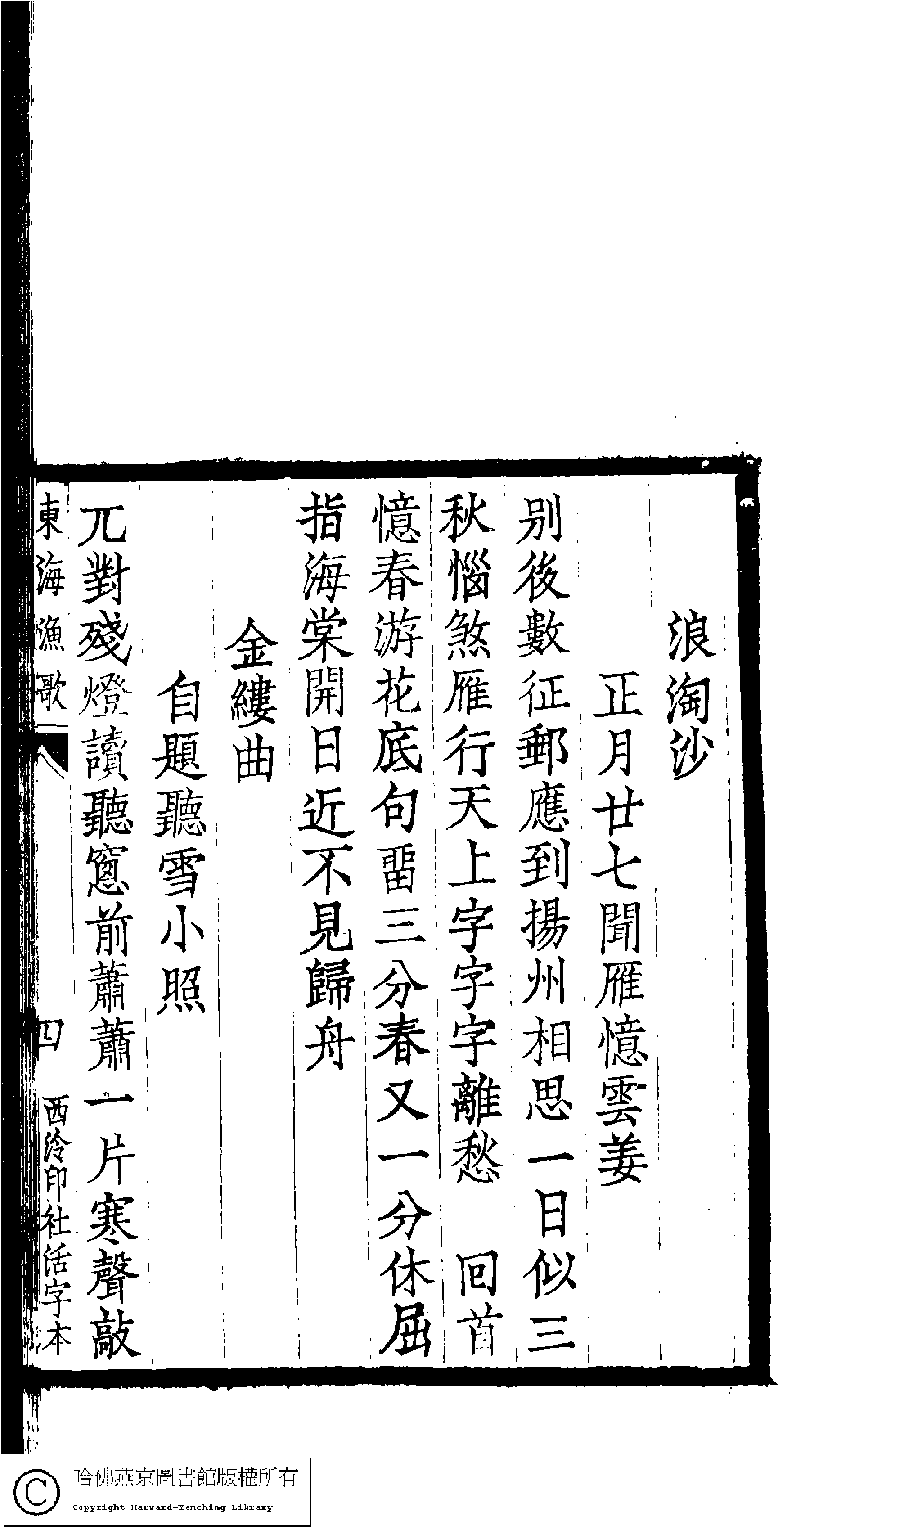 浪淘沙
正月廿七聞雁憶雲姜
別後數征郵應到揚州相思一日似三
秋惱煞雁行天上字字字離愁　回首
憶春游花底句畱三分春又一分休屈
指海棠開日近不見歸舟
金縷曲
自題聽雪小照
兀對殘燈讀聽窻前蕭蕭一片寒聲敲
東海漁歌　四　西泠印社活字本
哈佛燕京圖書館版權所有
Copyright Harvard-Yenching Library